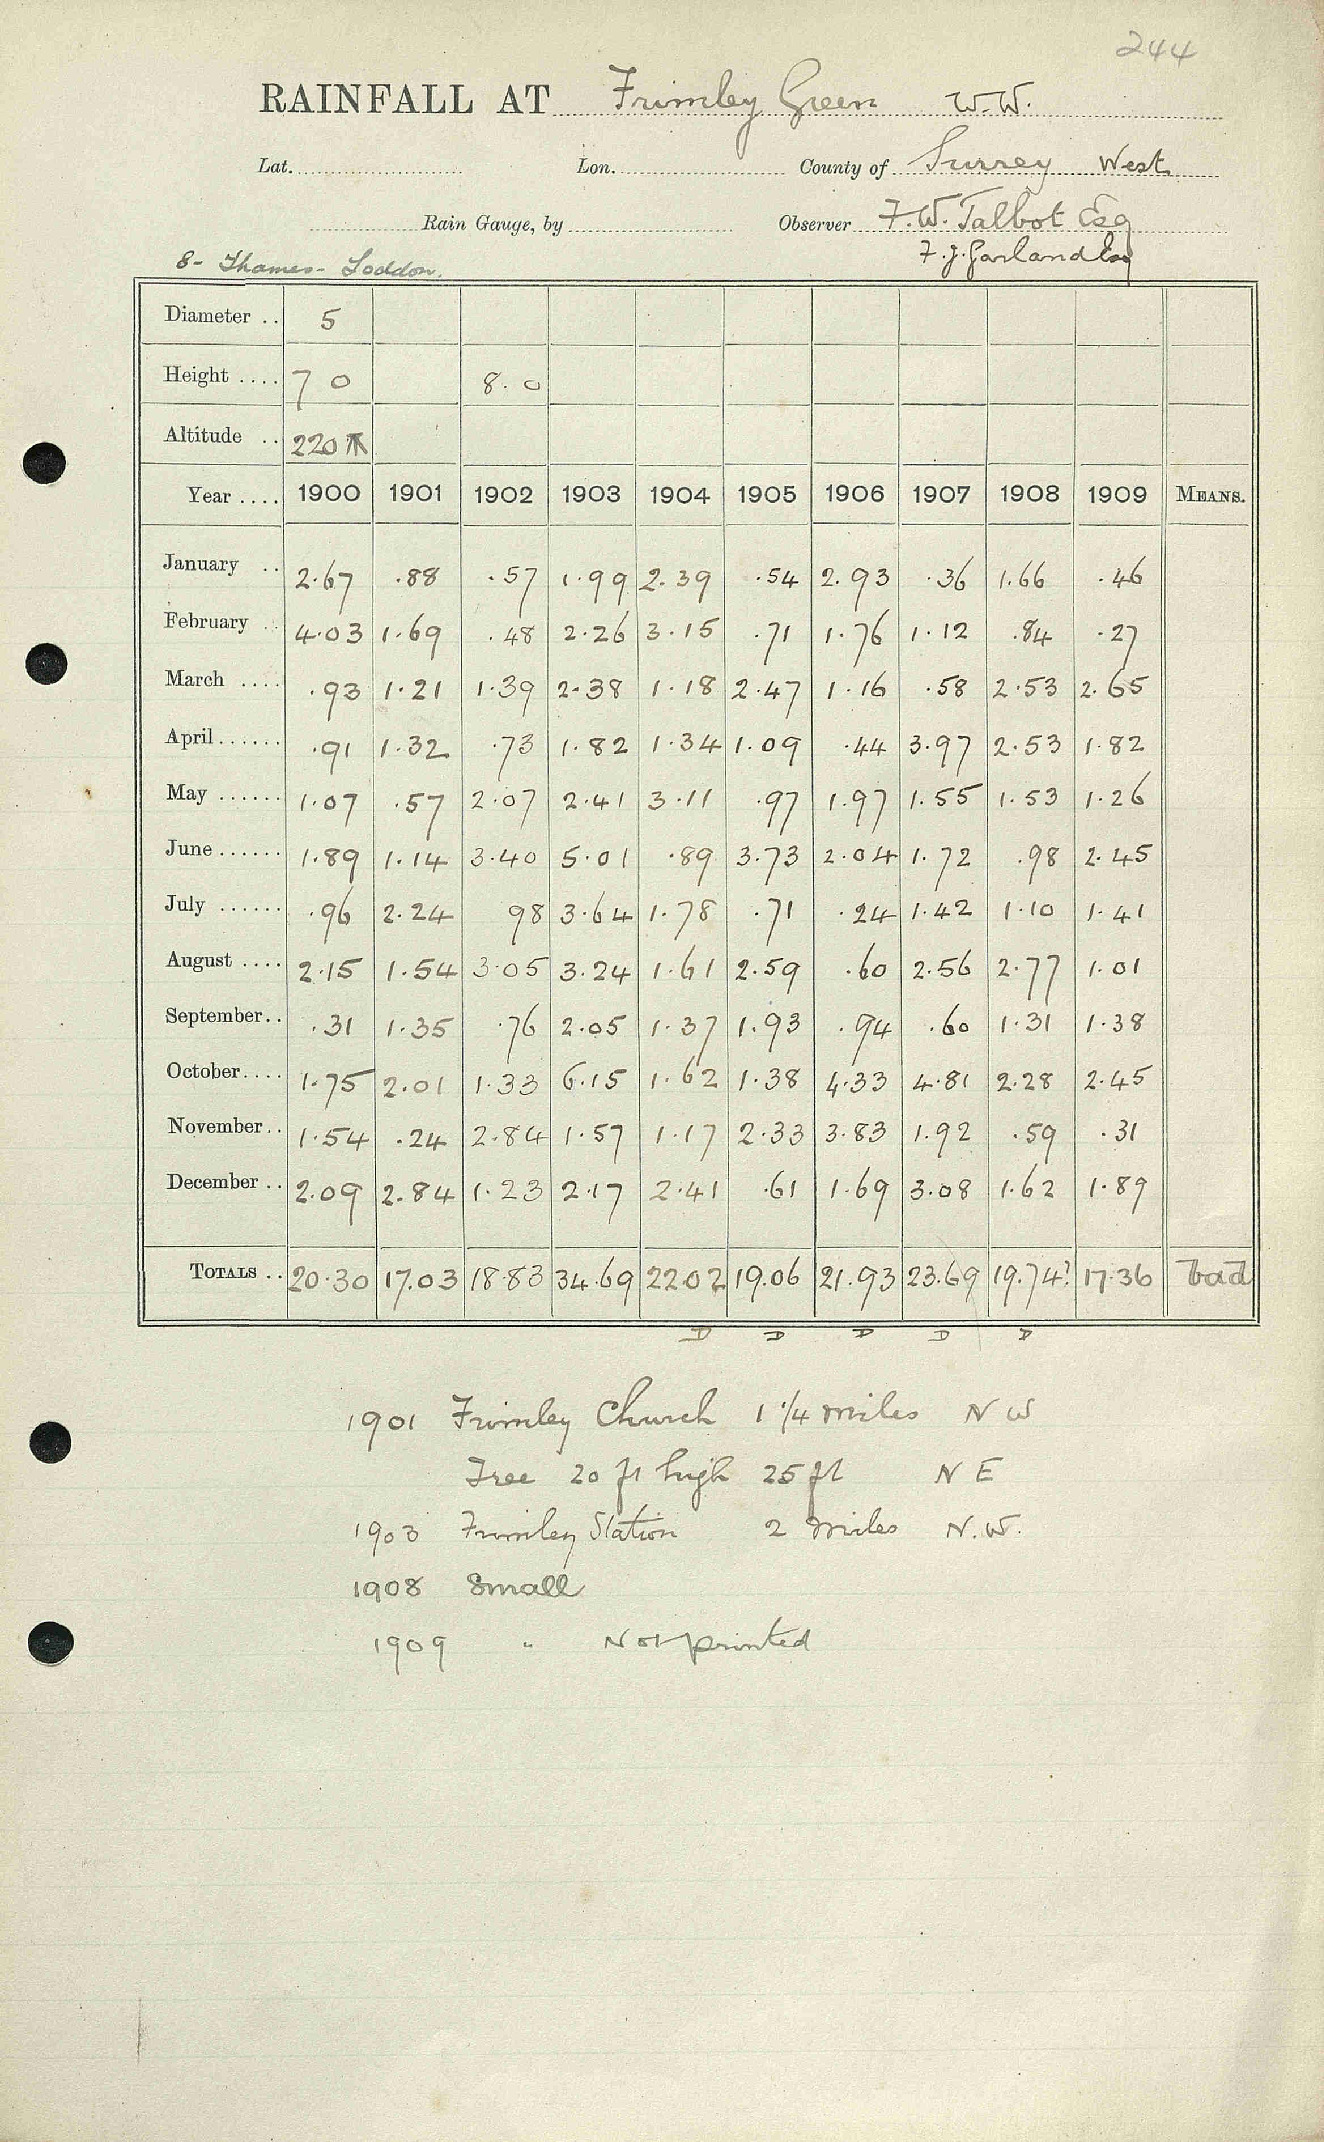 244
RAINFALL AT Frimley Green W.W.
Lat. Lon. County of Surrey West
Rain Gauge, by Observer F.W. Talbot Esq
8- Thames- Loddon. F.J. Garland Esq
Diameter .. 5
Height .... 7 0 8. 0
Altitude .. 220
Year .... 1900 1901 1902 1903 1904 1905 1906 1907 1908 1909 MEANS.
January .. 2.67 .88 .57 1.99 2.39 .54 2.93 .36 1.66 .46
February .. 4.03 1.69 .48 2.26 3.15 .71 1.76 1.12 .84 .27
March .... .93 1.21 1.39 2.38 1.18 2.47 1.16 .58 2.53 2.65
April...... .91 1.32 .73 1.82 1.34 1.09 .44 3.97 2.53 1.82
May ...... 1.07 .57 2.07 2.41 3.11 .97 1.97 1.55 1.53 1.26
June...... 1.89 1.14 3.40 5.01 .89 3.73 2.04 1.72 .98 2.45
July ...... .96 2.24 98 3.64 1.78 .71 .24 1.42 1.10 1.41
August .... 2.15 1.54 3.05 3.24 1.61 2.59 .60 2.56 2.77 1.01
September.. .31 1.35 .76 2.05 1.37 1.93 .94 .60 1.31 1.38
October.... 1.75 2.01 1.33 6.15 1.62 1.38 4.33 4.81 2.28 2.45
November.. 1.54 .24 2.84 1.57 1.17 2.33 3.83 1.92 .59 .31
December .. 2.09 2.84 1.23 2.17 2.41 .61 1.69 3.08 1.62 1.89
TOTALS .. 20.30 17.03 18.83 34.69 22.02 19.06 21.93 23.69 19.74? 17.36 bad
D D D D D
1901 Frimley Church 1 1/4 miles N W
Tree 20 ft high 25 ft N E
1903 Frimley Station 2 miles N.W.
1908 Small
1909 " Not printed